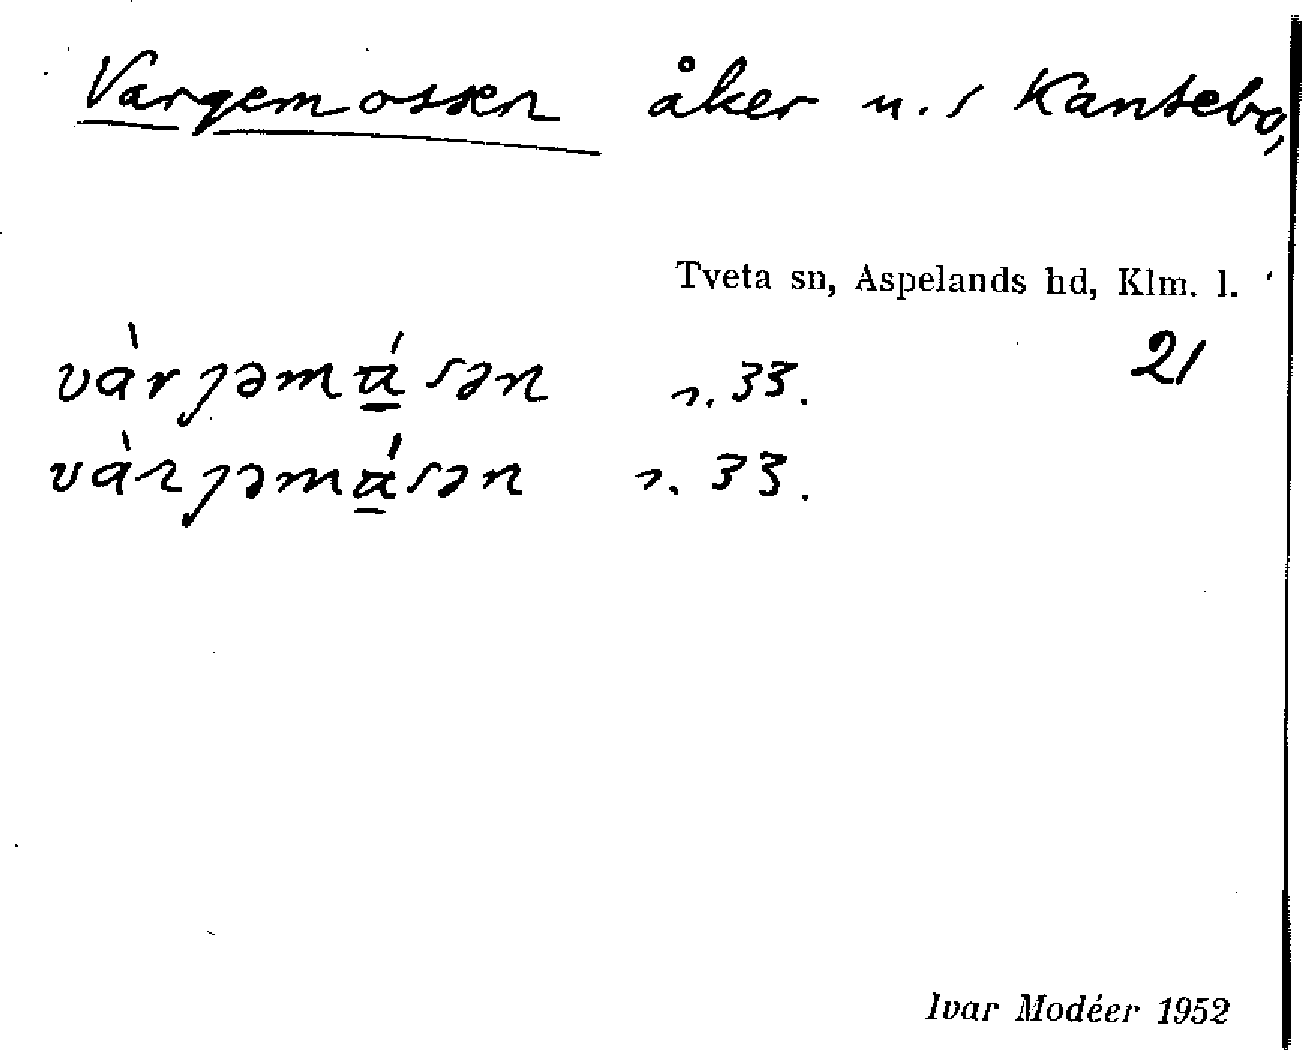 Vargemossen åker u.s Kantebo,
Tveta sn, Aspelands hd, Klm. l.
21
vàrȷəmá̱sən r. 33.
vàrȷəmá̱sən r. 33.
Ivar Modéer 1952